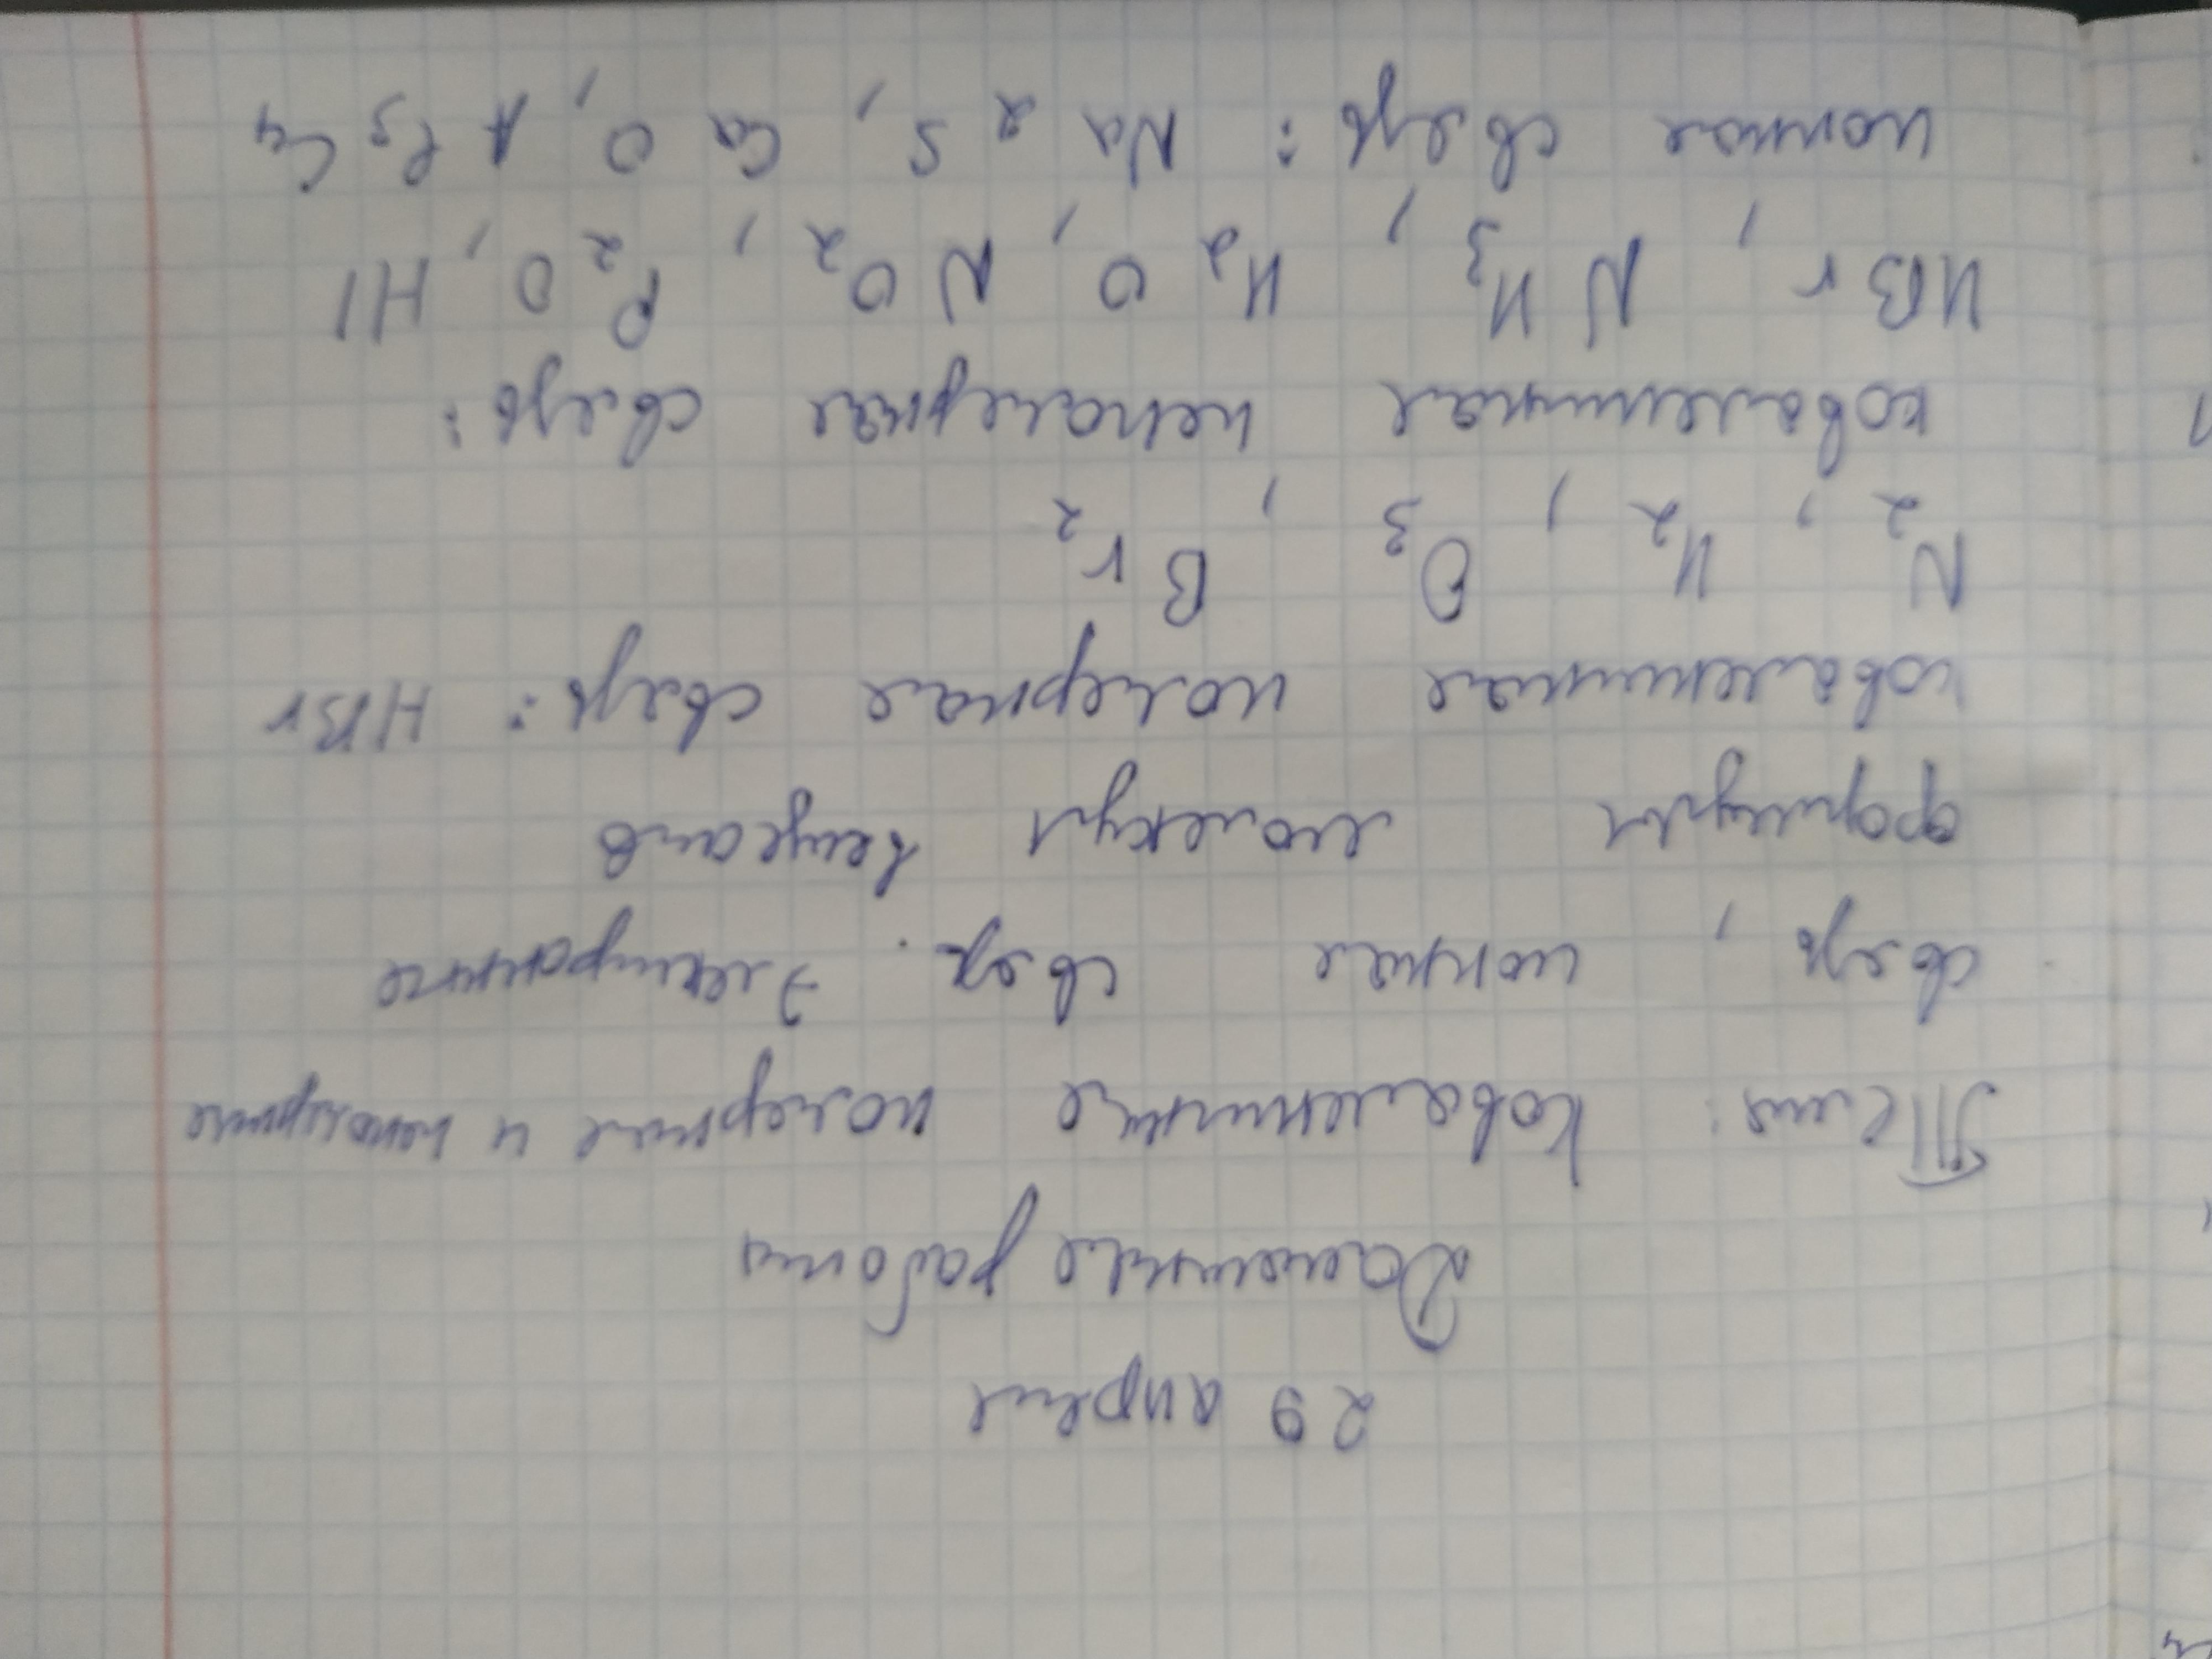 29 апреля
Домашняя работа
Тема: Ковалентные полярные и неполярные
связь, ионная связь. Электронные
формулы молекул веществ
ковалентная полярная связь: HBr
N2, H2, O3, Br2
ковалентная неполярная связь:
HBr, NH3, H2O, NO2, P2O, HI
ионная связь: Na2S, CaO, Al3C4